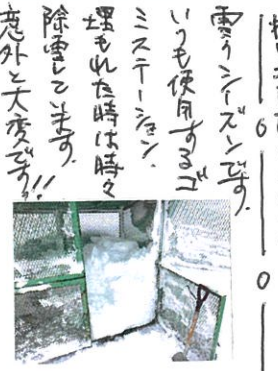 雪のシーズンです。
いつも使用するゴ
ミステーション、
埋もれた時は時々
除雪しています。
意外と大変です!!